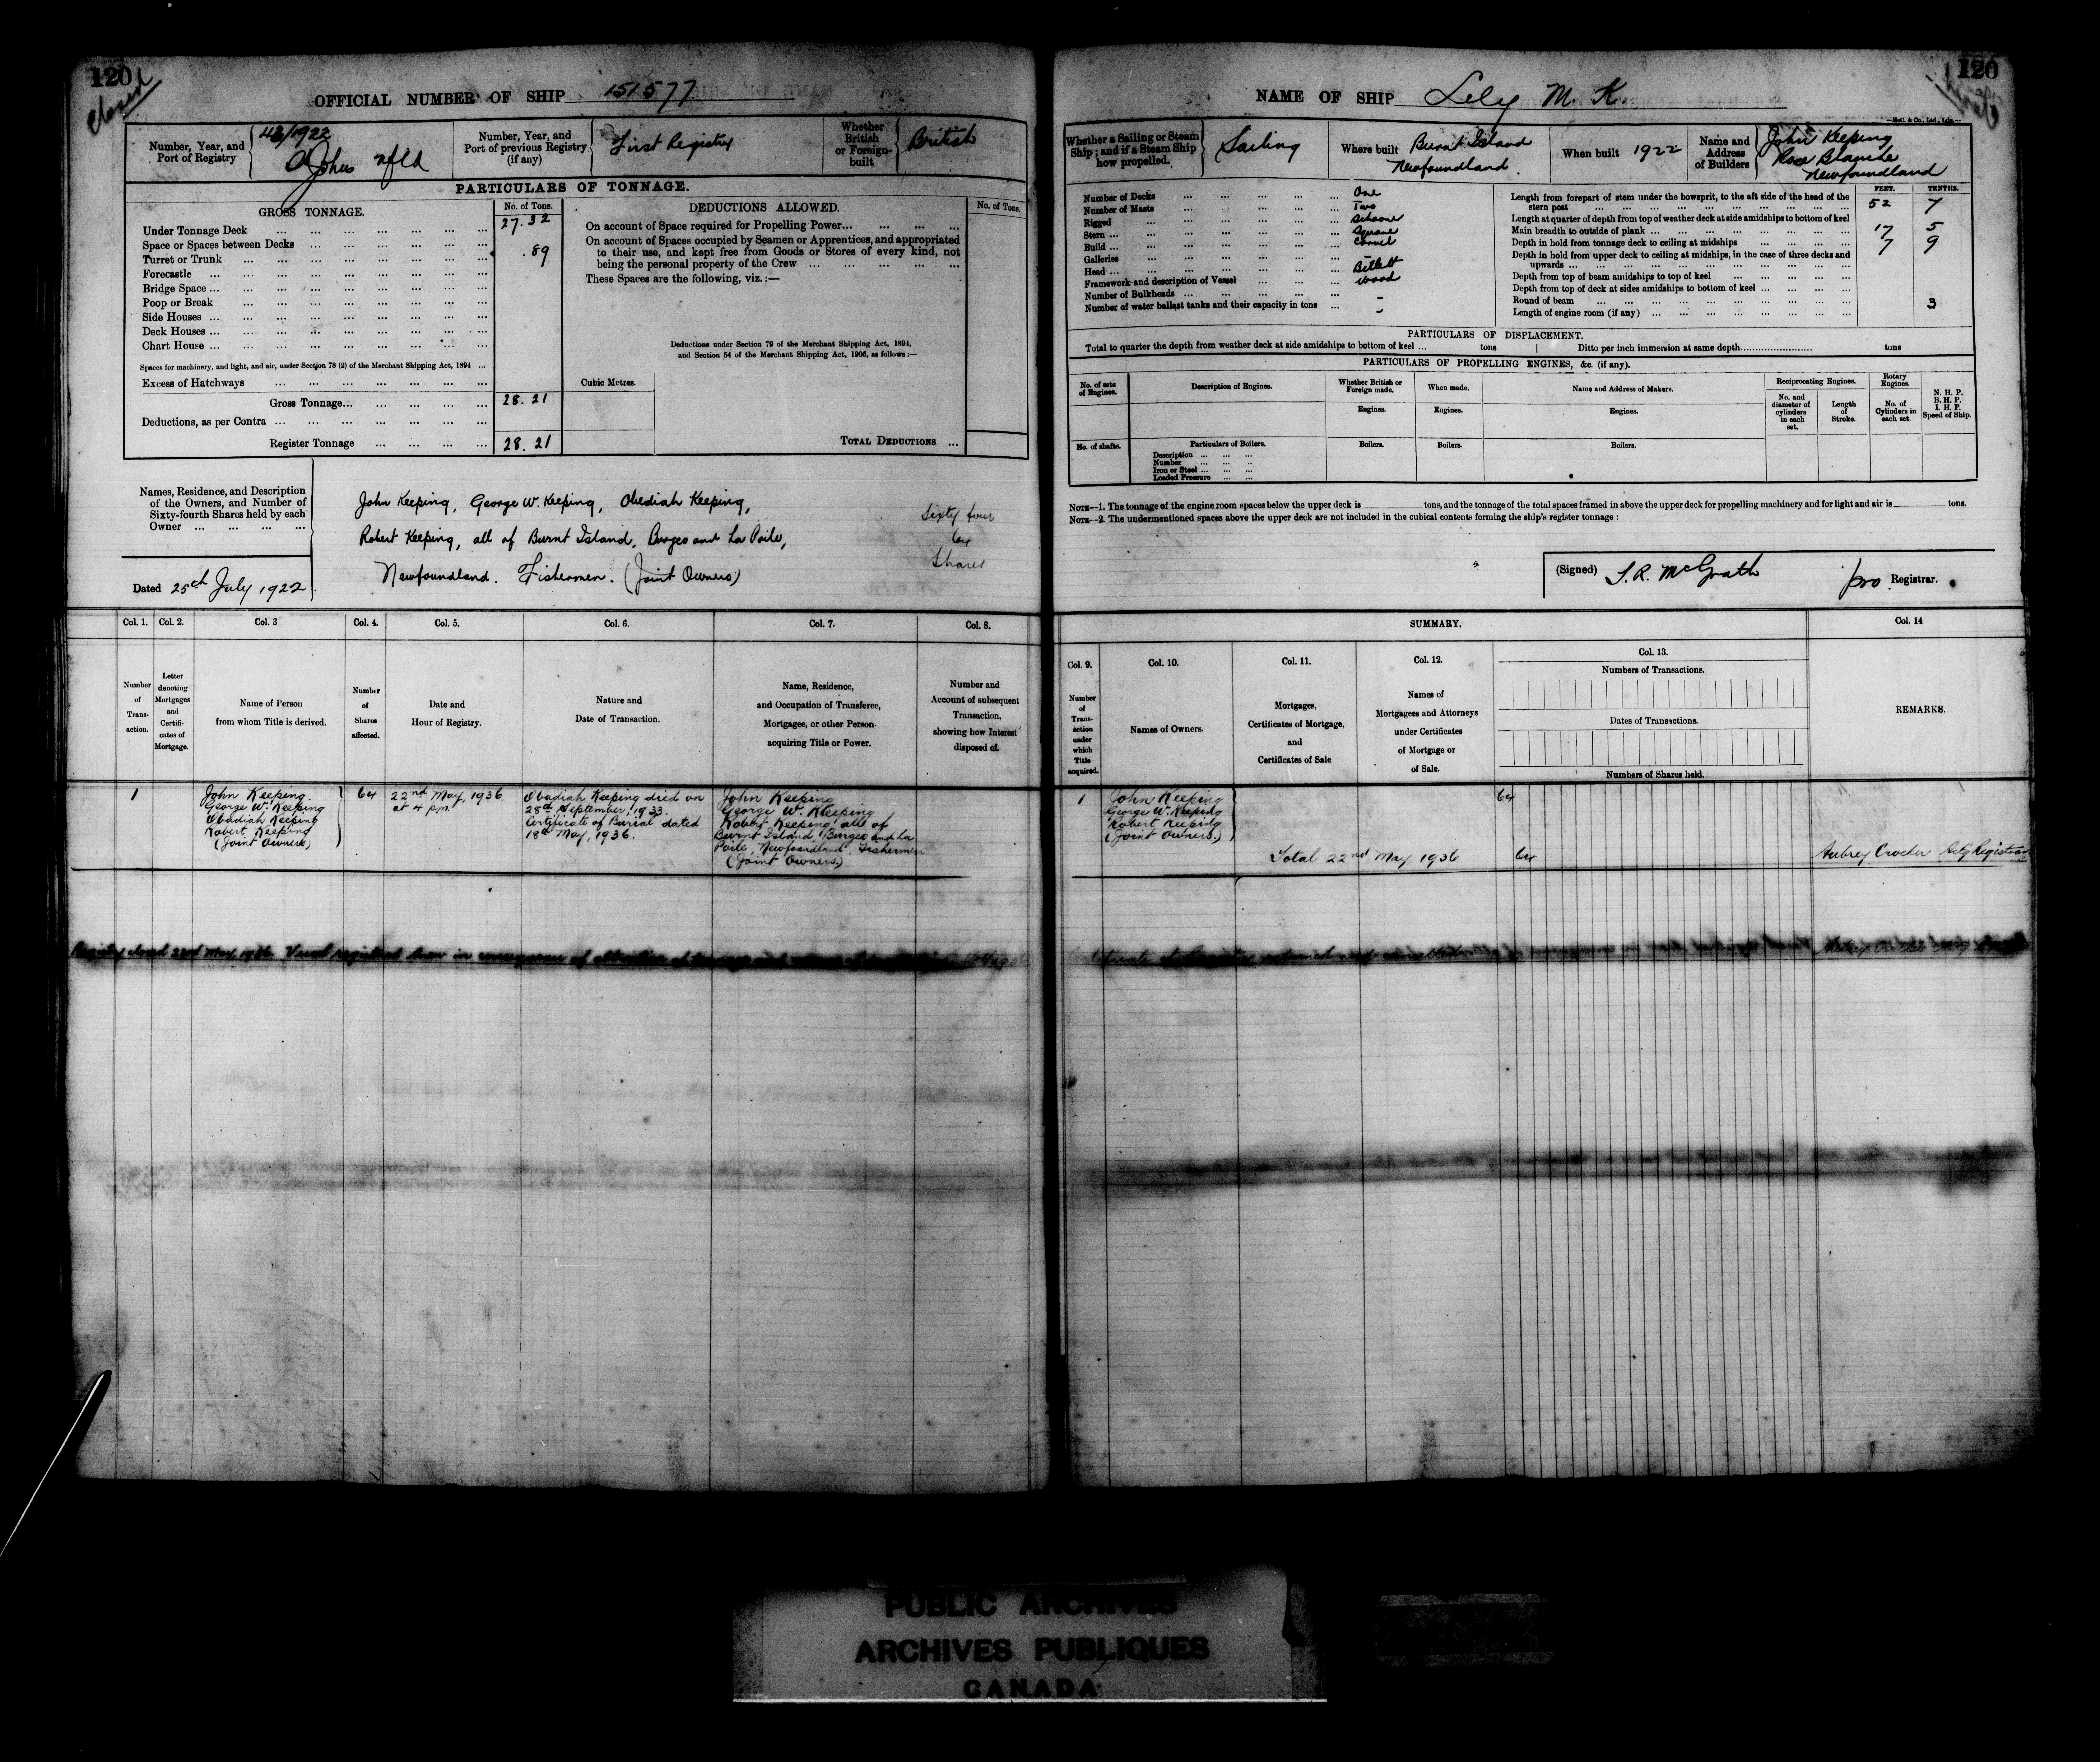 120
Closed
OFFICIAL NUMBER OF SHIP 151577
Number, Year, and Port of Registry
43/1922
St Johns nfld
Number, Year, and Port of previous Registry (if any)
First Registry
Whether British or Foreign-built
British
PARTICULARS OF TONNAGE.
GROSS TONNAGE.
No. of Tons.
DEDUCTIONS ALLOWED.
No. of Tons.
Under Tonnage Deck 27.32
Space or Spaces between Decks
Turret or Trunk .89
Forecastle
Bridge Space
Poop or Break
Side Houses
Deck Houses
Chart House
Spaces for machinery, and light, and air, under Section 78 (2) of the Merchant Shipping Act, 1894
Excess of Hatchways
Gross Tonnage 28.21
Deductions, as per Contra
Register Tonnage 28.21
On account of Space required for Propelling Power
On account of Spaces occupied by Seamen or Apprentices, and appropriated
to their use, and kept free from Goods or Stores of every kind, not
being the personal property of the Crew
These Spaces are the following, viz.:—
Deductions under Section 79 of the Merchant Shipping Act, 1894,
and Section 54 of the Merchant Shipping Act, 1906, as follows:—
Cubic Metres.
TOTAL DEDUCTIONS
Names, Residence, and Description
of the Owners, and Number of
Sixty-fourth Shares held by each
Owner
Dated 25th July 1922
John Keeping, George W. Keeping, Obediah Keeping,
Robert Keeping, all of Burnt Island, Burgeo and La Poile,
Newfoundland. Fishermen. (Joint Owners)
Sixty four
64
Shares
Col. 1.
Number of Transaction.
Col. 2.
Letter denoting Mortgages and Certificates of Mortgage.
Col. 3
Name of Person from whom Title is derived.
Col. 4.
Number of Shares affected.
Col. 5.
Date and Hour of Registry.
Col. 6.
Nature and Date of Transaction.
Col. 7.
Name, Residence, and Occupation of Transferee, Mortgagee, or other Person acquiring Title or Power.
Col. 8.
Number and Account of subsequent Transaction, showing how Interest disposed of.
1
John Keeping
George W. Keeping
Obadiah Keeping
Robert Keeping
(Joint Owners)
64
22nd May, 1936
at 4 p.m.
Obadiah Keeping died on
28th September, 1933.
Certificate of Burial dated
18th May, 1936.
John Keeping
George W. Keeping
Robert Keeping all of
Burnt Island, Burgeo and La
Poile, Newfoundland Fishermen
(Joint Owners)
Registry closed 22nd May, 1936. Vessel registered anew in consequence of alteration of tonnage
120
NAME OF SHIP Lily M. K.
McC. & Co., Ltd., Ldn.
Whether a Sailing or Steam Ship; and if a Steam Ship how propelled.
Sailing
Where built
Burnt Island
Newfoundland.
When built 1922
Name and Address of Builders
John Keeping
Rose Blanche
Newfoundland
Number of Decks One
Number of Masts Two
Rigged Schooner
Stern Square
Build Carvel
Galleries
Head Billett
Framework and description of Vessel Wood
Number of Bulkheads -
Number of water ballast tanks and their capacity in tons -
FEET. TENTHS.
Length from forepart of stem under the bowsprit, to the aft side of the head of the
stern post 52 7
Length at quarter of depth from top of weather deck at side amidships to bottom of keel
Main breadth to outside of plank 17 5
Depth in hold from tonnage deck to ceiling at midships 7 9
Depth in hold from upper deck to ceiling at midships, in the case of three decks and
upwards
Depth from top of beam amidships to top of keel
Depth from top of deck at sides amidships to bottom of keel
Round of beam 3
Length of engine room (if any)
PARTICULARS OF DISPLACEMENT.
Total to quarter the depth from weather deck at side amidships to bottom of keel tons
Ditto per inch immersion at same depth tons
PARTICULARS OF PROPELLING ENGINES, &c. (if any).
No. of sets of Engines.
Description of Engines.
Whether British or Foreign made.
When made.
Name and Address of Makers.
Reciprocating Engines.
Rotary Engines.
N. H. P.
B. H. P.
I. H. P.
Speed of Ship.
Engines. Engines. Engines.
No. and diameter of cylinders in each set.
Length of Stroke.
No. of Cylinders in each set.
No. of shafts.
Particulars of Boilers.
Boilers. Boilers. Boilers.
Description
Number
Iron or Steel
Loaded Pressure
NOTE—1. The tonnage of the engine room spaces below the upper deck is tons, and the tonnage of the total spaces framed in above the upper deck for propelling machinery and for light and air is tons.
NOTE—2. The undermentioned spaces above the upper deck are not included in the cubical contents forming the ship's register tonnage:
(Signed) S.R. McGrath pro Registrar.
SUMMARY.
Col. 9.
Number of Transaction under which Title acquired.
Col. 10.
Names of Owners.
Col. 11.
Mortgages, Certificates of Mortgage, and Certificates of Sale
Col. 12.
Names of Mortgagees and Attorneys under Certificates of Mortgage or of Sale.
Col. 13.
Numbers of Transactions.
Dates of Transactions.
Numbers of Shares held.
Col. 14
REMARKS.
1
John Keeping
George W. Keeping
Robert Keeping
(Joint Owners.)
64
Total 22nd May 1936 64
Aubrey Crocker Dep'y Registrar
PUBLIC ARCHIVES
ARCHIVES PUBLIQUES
CANADA